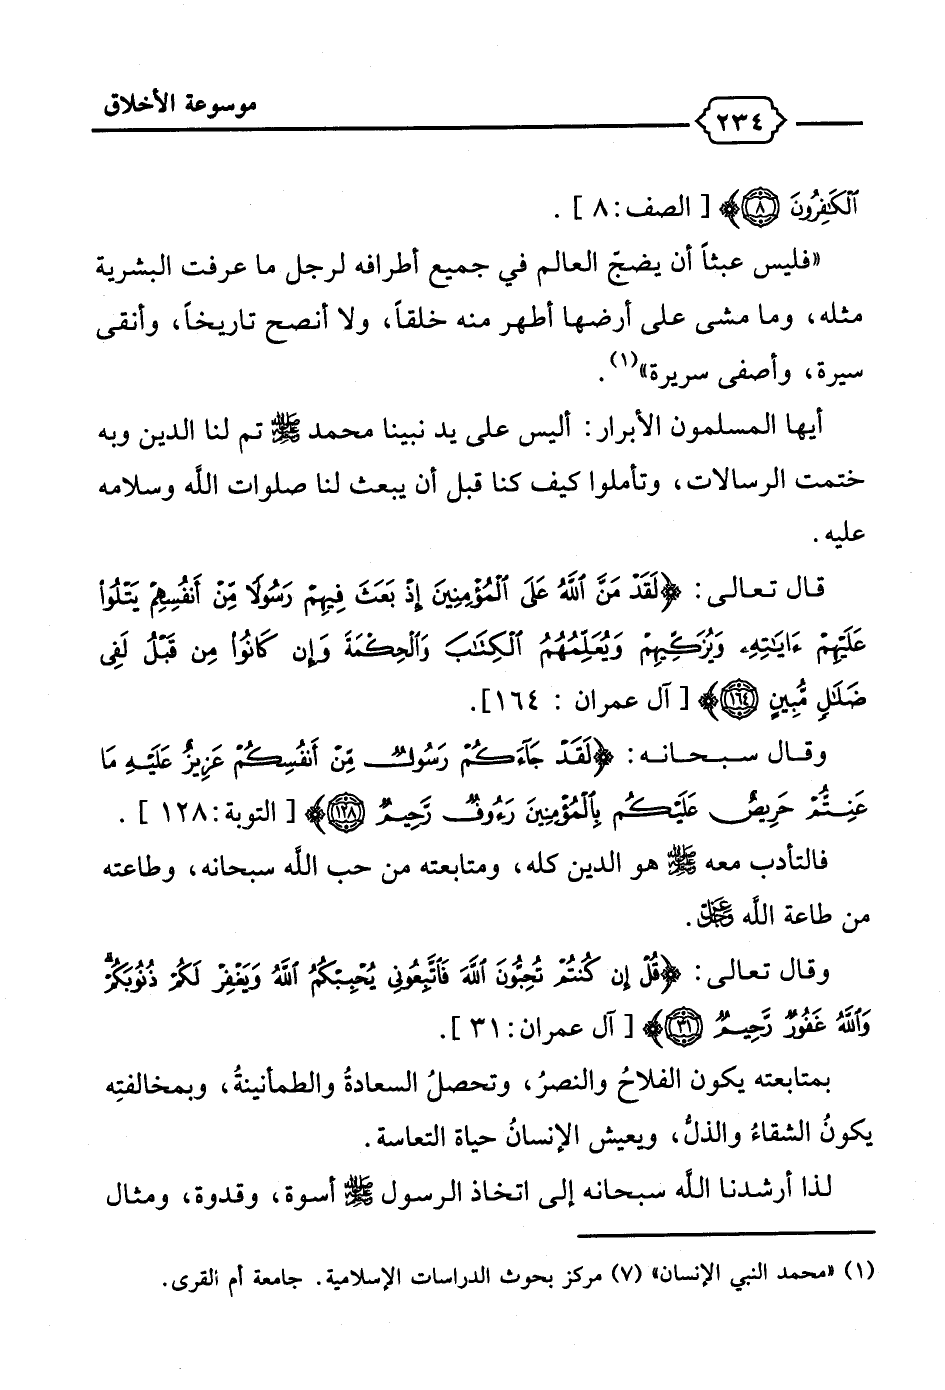 موسوعة الأخلاق
٢٣٤
ٱلْكَٰفِرُونَ ﴿٨﴾ [ الصف: ٨ ] .
«فليس عبثاً أن يضجّ العالم في جميع أطرافه لرجل ما عرفت البشرية
مثله، وما مشى على أرضها أطهر منه خلقاً، ولا أنصح تاريخاً، وأنقى
سيرة، وأصفى سريرة»(١).
أيها المسلمون الأبرار: أليس على يد نبينا محمد ﷺ تم لنا الدين وبه
ختمت الرسالات، وتأملوا كيف كنا قبل أن يبعث لنا صلوات اللَّه وسلامه
عليه.
قال تعالى: ﴿لَقَدْ مَنَّ ٱللَّهُ عَلَى ٱلْمُؤْمِنِينَ إِذْ بَعَثَ فِيهِمْ رَسُولًا مِّنْ أَنفُسِهِمْ يَتْلُوا۟
عَلَيْهِمْ ءَايَٰتِهِۦ وَيُزَكِّيهِمْ وَيُعَلِّمُهُمُ ٱلْكِتَٰبَ وَٱلْحِكْمَةَ وَإِن كَانُوا۟ مِن قَبْلُ لَفِى
ضَلَٰلٍ مُّبِينٍ ١٦٤﴾ [ آل عمران : ١٦٤].
وقال سبحانه: ﴿لَقَدْ جَآءَكُمْ رَسُولٌ مِّنْ أَنفُسِكُمْ عَزِيزٌ عَلَيْهِ مَا
عَنِتُّمْ حَرِيصٌ عَلَيْكُم بِٱلْمُؤْمِنِينَ رَءُوفٌ رَّحِيمٌ ١٢٨﴾ [ التوبة: ١٢٨ ] .
فالتأدب معه ﷺ هو الدين كله، ومتابعته من حب اللَّه سبحانه، وطاعته
من طاعة اللَّه عز وجل.
وقال تعالى: ﴿قُلْ إِن كُنتُمْ تُحِبُّونَ ٱللَّهَ فَٱتَّبِعُونِى يُحْبِبْكُمُ ٱللَّهُ وَيَغْفِرْ لَكُمْ ذُنُوبَكُمْ ۗ
وَٱللَّهُ غَفُورٌ رَّحِيمٌ ٣١﴾ [ آل عمران: ٣١ ].
بمتابعته يكون الفلاحُ والنصرُ، وتحصلُ السعادةُ والطمأنينةُ، وبمخالفتِه
يكونُ الشقاءُ والذلُّ، ويعيش الإنسانُ حياة التعاسة.
لذا أرشدنا اللَّه سبحانه إلى اتخاذ الرسول ﷺ أسوة، وقدوة، ومثال
(١) «محمد النبي الإنسان» (٧) مركز بحوث الدراسات الإسلامية. جامعة أم القرى.